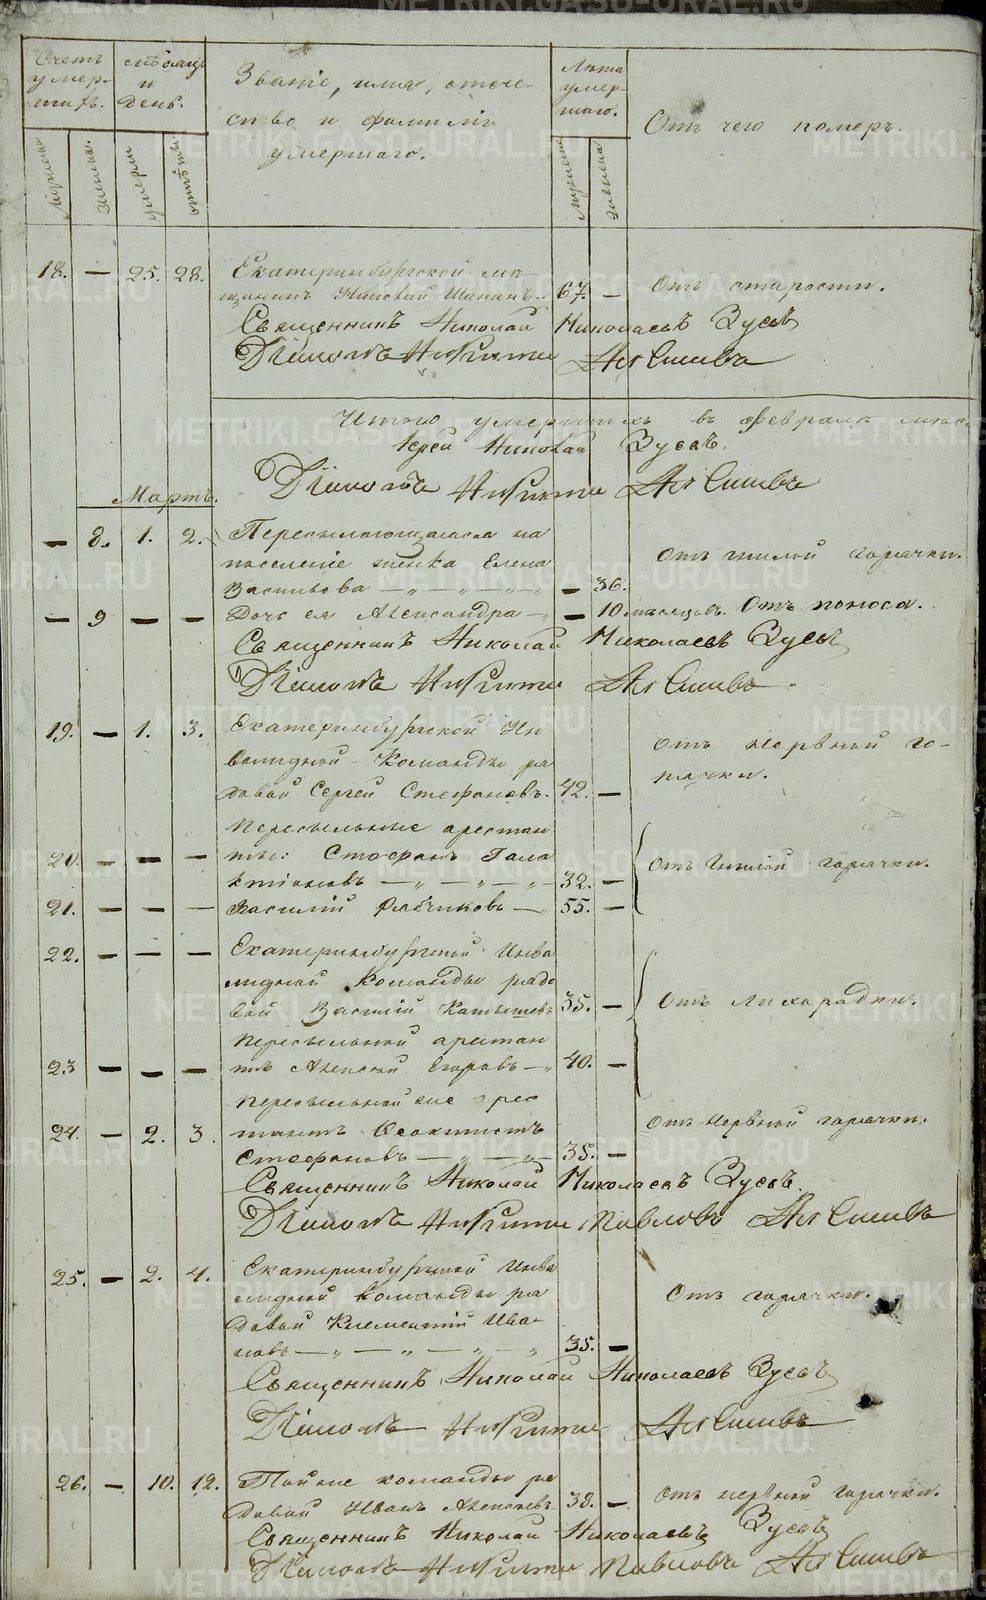 Счетъ умер-шихъ.
Мѣсяцъ и день.
Званіе, имя, отече-
ство и фамилія
умершаго.
Лѣта умер-шаго.
Отъ чего померъ.
Мужеска
Женска.
умерли
Мужеска
Женска
18. — 25. 28. Екатеринбургской мѣ-
щанинъ Николай Шанинъ.. 67. — Отъ старости.
Священникъ Николай Николаевъ Зуевъ
Діаконъ Никита
Итого умершихъ въ февралѣ
Іерей Николай Зуевъ.
Діаконъ Никита
Мартъ.
— 8. 1. 2. Пересылающаяся на
поселеніе женка Елена
Васильева — „ — „ — „ — 36. Отъ гнилой горячки.
— 9 — — Дочь ея Александра — „ — 10 мѣсяцовъ. Отъ поноса.
Священникъ Николай Николаевъ Зуевъ
Діаконъ Никита
19. — 1. 3. Екатеринбургской Ин
валидной Команды ря
довой Сергей Стефановъ. 42. — Отъ нервной го-
рячки.
Пересыльные арестан
20. — — — ты: Стефанъ Гала
ктіоновъ — „ — „ — „ 32. — Отъ Гнилой горячки.
21. — — — Василій Рябчиковъ — „ 55. —
22. — — — Екатеринбургской Инва
лидной Команды рядо
вой Василій 35. — Отъ лихорадки.
Пересыльной арестан
23 — — — тъ Алексѣй Егоровъ — „ 40. —
Пересыльной же арес
24. — 2. 3. тантъ Феоктистъ
Стефановъ — „ — „ 35. — Отъ Нервной горячки.
Священникъ Николай Николаевъ Зуевъ.
Діаконъ Никита Павловъ
25. — 2. 4. Екатеринбургской Инва
лидной Команды ря
довой Климентій Ива-
новъ — „ — „ — „ 35. — Отъ горячки.
Священникъ Николай Николаевъ Зуевъ
Діаконъ Никита
26. — 10. 12. Той же команды ря
довой Иванъ Алексѣевъ 38. — Отъ нервной горячки.
Священникъ Николай Николаевъ Зуевъ
Діаконъ Никита Павловъ
METRIKI.GASO-URAL.RU